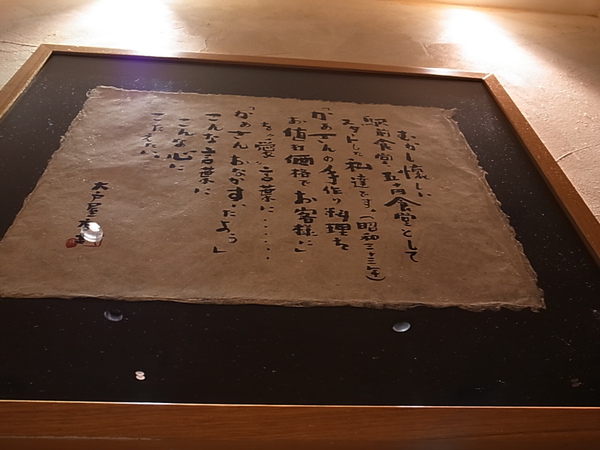 むかし懐しい
駅前食堂、五十円食堂として
スタートした私達です。(昭和三十三年)
「かあさんの手作り料理を
お値打価格でお客様に」
愛言葉に・・・・・
「かあさんおなかすいたよう」
こんな言葉に
こんな心に
こたえたい
大戸屋